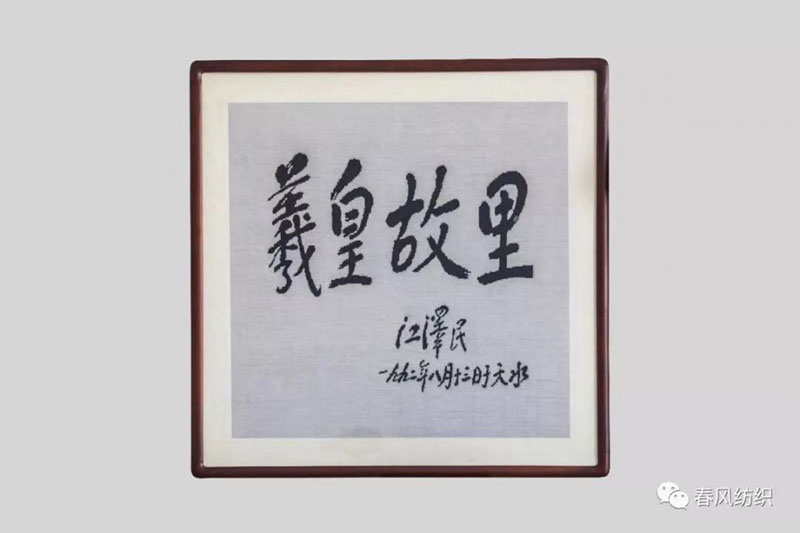 羲皇故里
江泽民
一九九二年八月十三日于天水
春风纺织